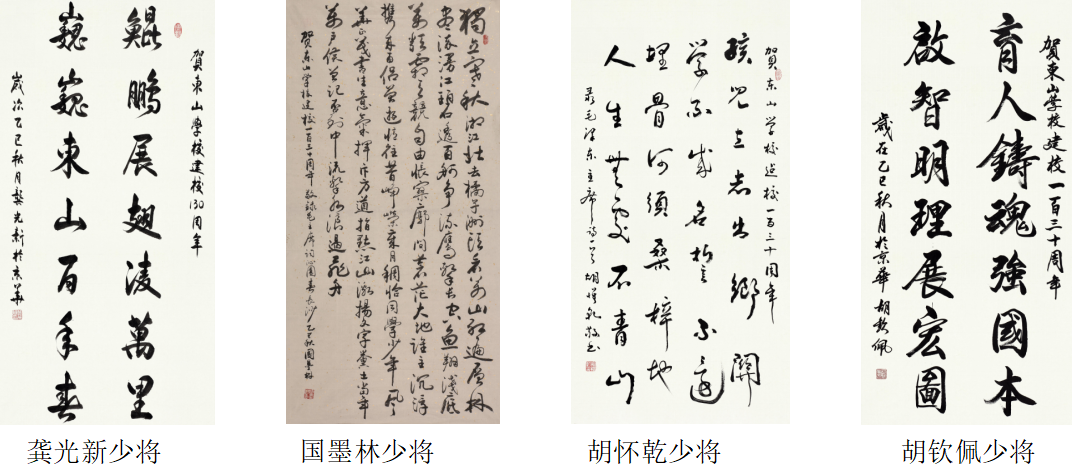 賀東山學校建校130周年
鯤鵬展翅淩萬里
巍巍東山百年春
歲次乙巳秋月龔光新於京華
獨立寒秋湘江北去橘子洲頭看萬山紅遍層林
盡染漫江碧透百舸爭流鷹擊長空魚翔淺底
萬類霜天競自由悵寥廓問蒼茫大地誰主沉浮
攜來百侶曾遊憶往昔崢嶸歲月稠恰同學少年風
華正茂書生意氣揮斥方遒指點江山激揚文字糞土當年
萬戶侯曾記否到中流擊水浪遏飛舟
賀東山學校建校一百三十周年敬錄毛主席詞沁園春長沙乙巳秋國墨林
賀東山學校建校一百三十周年
孩兒立志出鄉關
學不成名誓不還
埋骨何須桑梓地
人生無處不青山
錄毛澤東主席詩一首胡懷乾敬書
賀東山學校建校一百三十周年
育人鑄魂強國本
啟智明理展宏圖
歲在乙巳秋月於京華胡欽佩
龚光新少将
国墨林少将
胡怀乾少将
胡钦佩少将